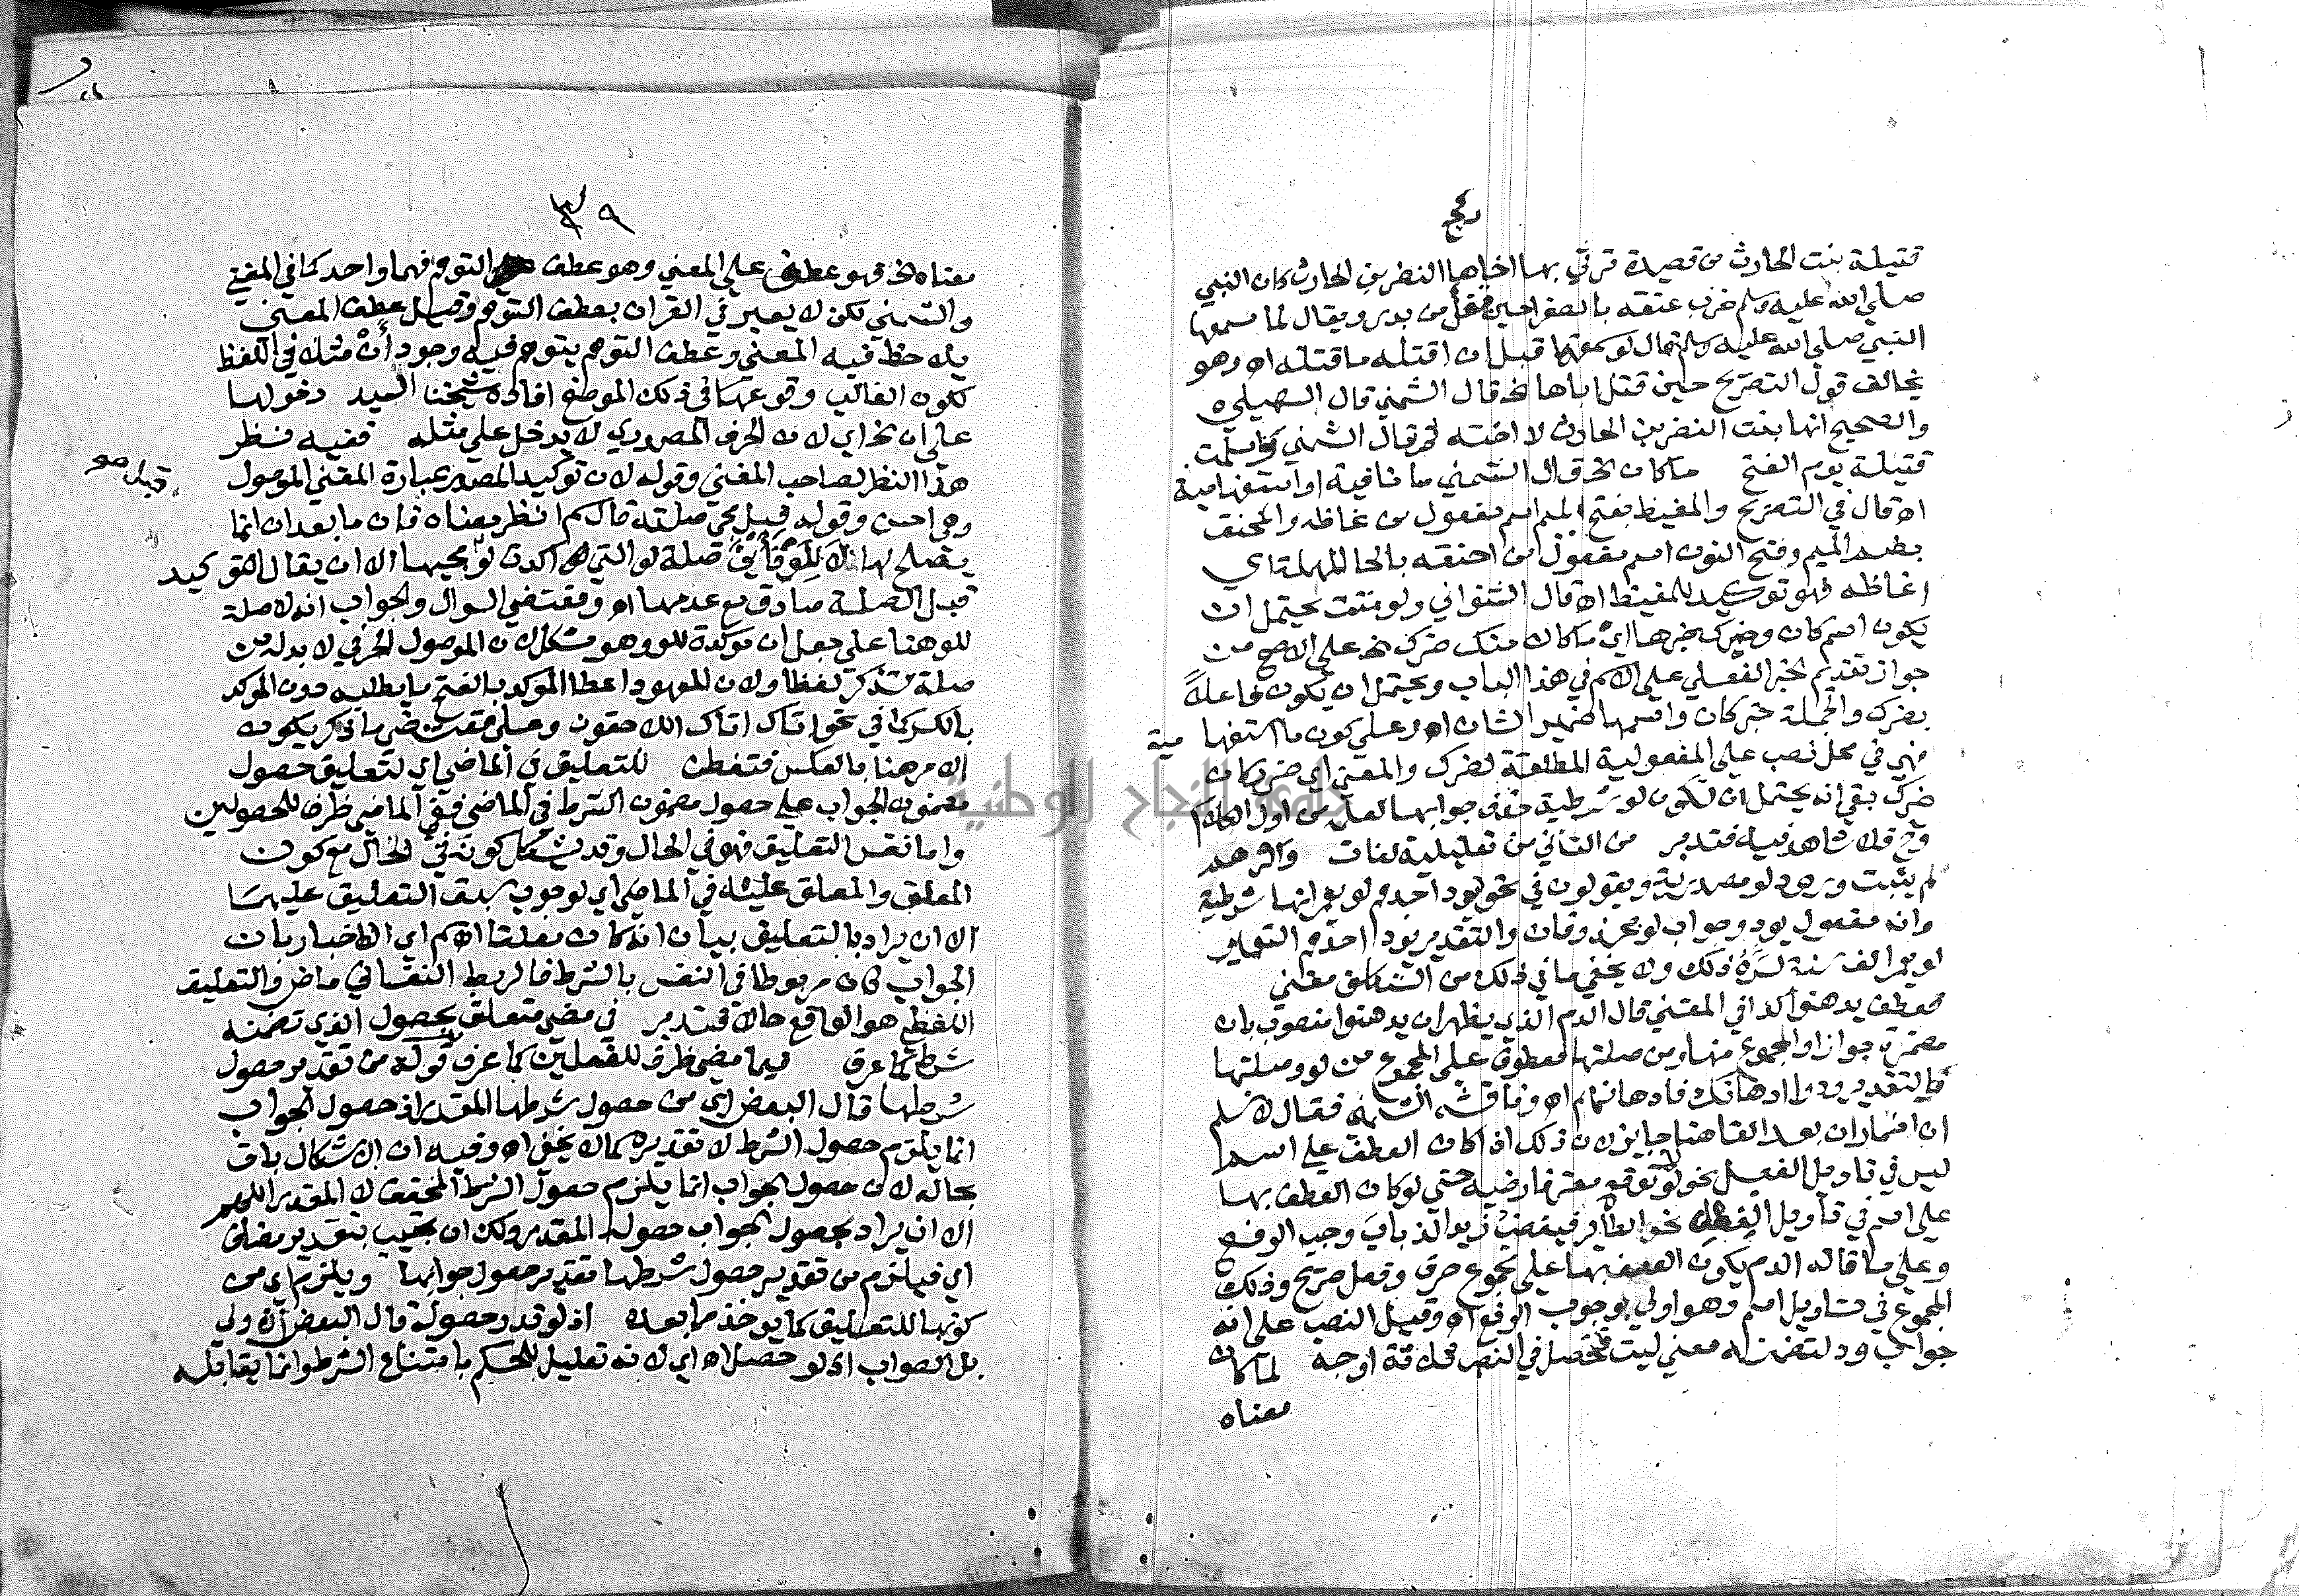 قتيلة بنت الحارث من قصيدة ترثي بها اخاها النضر بن الحارث كان النبي
صلى الله عليه وسلم ضرب عنقه بالصفرا حين قفل من بدر ويقال لما سمعها
النبي صلى الله عليه وسلم قال لو سمعتها قبل ان اقتله ما قتلته اه وهو
يخالف قول التصريح حين قتل اباها الخ قال الشمني قال السهيلي
والصحيح انها بنت النضر بن الحارث لا اخته ثم قال الشمني واسلمت
قتيلة يوم الفتح ما كان الخ قال الشمني ما نافية او استفهامية
اه قال في التصريح والمغيظ بفتح الميم اسم مفعول من غاظه والمحنق
بضم الميم وفتح النون اسم مفعول من احنقه بالحا المهملة اي
اغاظه فهو توكيد للمغيظ اه قال الشنواني ولو مننت يحتمل ان
يكون اسم كان وضرك خبرها اي ما كان منك ضرك الخ على الاصح من
جواز تقديم الخبر الفعلي على الاسم في هذا الباب ويحتمل ان يكون فاعلا
بضرك والجملة خبر كان واسمها ضمير الشان اه وعلى كون ما استفها مية
فهي في محل نصب على المفعولية المطلقة لضرك والمعنى اي ضر كان
ضرك بقي انه يحتمل ان تكون لو شرطية حذف جوابها لعلمه من اول الكلام
وح فلا شاهد فيه فتدبر من الثاني من تعليلية لفات واكثرهم
لم يثبت ورود لو مصدرية ويقولون في نحو يود احدهم لو يعمر انها شرطية
وانه مفعول يود وجواب لو محذوفان والتقدير يود احدهم التعمير
لو يعمر الف سنة لسره ذلك ولا يخفى ما في ذلك من التكلف مغني
فعطف يدهنوا الخ في المغني قال الدم الذي يظهر ان يدهنوا منصوب بان
مضمرة جوازا والمجموع منها ومن صلتها معطوف على المجموع من لو وصلتها
والتقدير ودوا ادهانك فادهانهم اه وناقشه الشمني فقال لا نسلم
ان اضمار ان بعد الفا هنا جايز لان ذلك اذا كان العطف على اسم
ليس في تاويل الفعل نحو لولا توقع معتر فارضيه حتى لو كان العطف بها
على اسم في تاويل الفعل نحو الطاير فيغضب زيد الذباب وجب الرفع
وعلى ما قاله الدم يكون العطف بها على مجموع حرف وفعل صريح وذلك
المجموع في تاويل اسم وهو اولى بوجوب الرفع اه وقيل النصب على انه
جواب ود لتضمنه معنى ليت فتحصل في النصب ثلاثة اوجه لما كان
معناه
٣٩
معناه الخ فهو عطف على المعنى وهو عطف التوهم فهما واحد كما في المغني
والشمني لكن لا يعبر في القران بعطف التوهم وقيل عطف المعنى
يلاحظ فيه المعنى وعطف التوهم يتوهم فيه وجود ان مثلا في اللفظ
لكون الغالب وقوعها في ذلك الموضع افاده شيخنا السيد دخولها
على ان الخ اي لان الحرف المصدري لا يدخل على مثله ففيه نظر
هذا النظر لصاحب المغني وقوله لان توكيد المصدر عبارة المغني الموصول
قبل
وهي احسن وقوله قبل مجئ صلته قال سم انظر معناه فان ما بعد ان انما
يصلح لها لا للو فاين صلة لو التي اكدت لو بمجيها الا ان يقال التوكيد
قبل الصلة صادق مع عدمها اه ومقتضى السوال والجواب انه لا صلة
للو هنا على جعل ان موكدة للو وهو مشكل لان الموصول الحرفي لا بد له من
صلة تذكر لفظا ولان المعهود اعطا الموكد بالفتح ما يطلبه دون الموكد
بالكسر كما في نحو اتاك اتاك اللاحقون وعلى مقتضى ما ذكر يكون
الامر هنا بالعكس فتفطن للتعليق في الماضي اي لتعليق حصول
مضمون الجواب على حصول مضمون الشرط في الماضي ففي الماضي ظرف للحصولين
واما نفس التعليق فهو في الحال وقد يشكل كونه في الحال مع كون
المعلق والمعلق عليه في الماضي اي لوجوب سبق التعليق عليهما
الا ان يراد بالتعليق بيان انه كان معلقا اه سم اي الاخبار بان
الجواب كان مربوطا في النفس بالشرط فالربط النفساني ماض والتعليق
اللفظي هو الواقع حالا فتدبر في مضي متعلق بحصول الذي تضمنه
شرط كما عرف فيما مضى ظرف للفعلين كما عرف قوله من تقدير حصول
شرطها قال البعض اي من حصول شرطها المقدر اذ حصول الجواب
انما يلزم حصول الشرط لا تقديره كما لا يخفى اه وفيه ان الاشكال باق
بحاله لان حصول الجواب انما يلزم حصول الشرط المحقق لا المقدر اللهم
الا ان يراد بحصول الجواب حصوله المقدر ولك ان تجيب بتقدير مضاف
اي فيلزم من تقدير حصول شرطها تقدير حصول جوابها ويلزم اي من
كونها للتعليق كما يوخذ مما بعده اذ لو قدر حصوله قال البعض الاولى
بل الصواب اذ لو حصل اه اي لانه تعليل للحكم بامتناع الشرط وانما يقابله